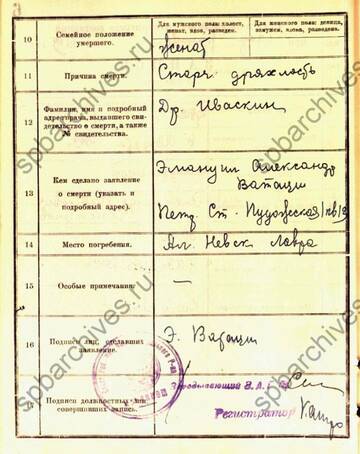 Для мужского пола: холост, женат, вдов, разведен.
Для женского пола: девица, замужем, вдова, разведена.
10 Семейное положение умершего. Женат
11 Причина смерти. Старч. дряхлость
12 Фамилия, имя и подробный адрес врача, выдавшего свидетельство о смерти, а также № свидетельства. Др. Иваскин
13 Кем сделано заявление о смерти (указать и подробный адрес). Эмануил Александр
Ватаци
Петр. Ст. Пудожская
14 Место погребения. Ал. Невск Лавра
15 Особые примечания: —
16 Подписи лиц, сделавших заявление. Э. Ватаци
Заведывающий З.А.Г.С.
17 Подписи должностных лиц, совершивших запись. Регистратор
spbarchives.ru
spbarchives.ru
spbarchives.ru
spbarchives.ru
spbarchives.ru
spbarchives.ru